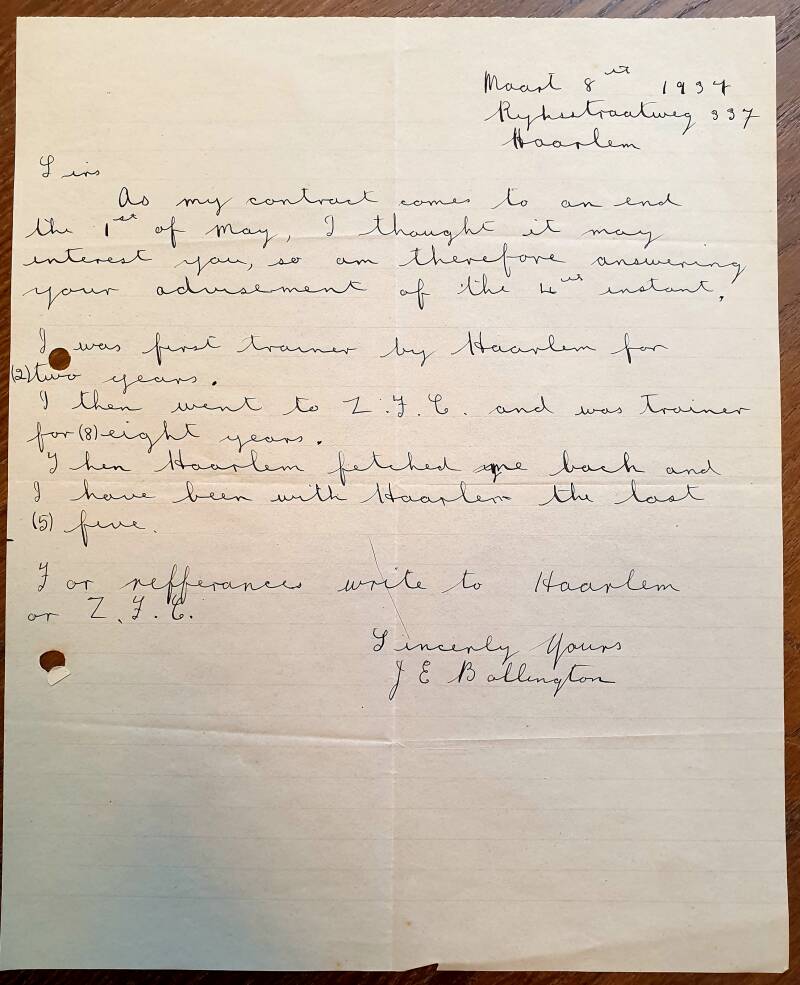 Maart 8st 1937
Ryksstraatweg 337
Haarlem
Sirs
As my contract comes to an end
the 1st of May, I thought it may
interest you, so am therefore answering
your advisement of the 4st instant.
I was first trainer by Haarlem for
(2) two years.
I then went to Z.F.C. and was trainer
for (8) eight years.
Then Haarlem fetched me back and
I have been with Haarlem the last
(5) five.
For refferances write to Haarlem
or Z.F.C.
Sincerly Yours
J E Bollington